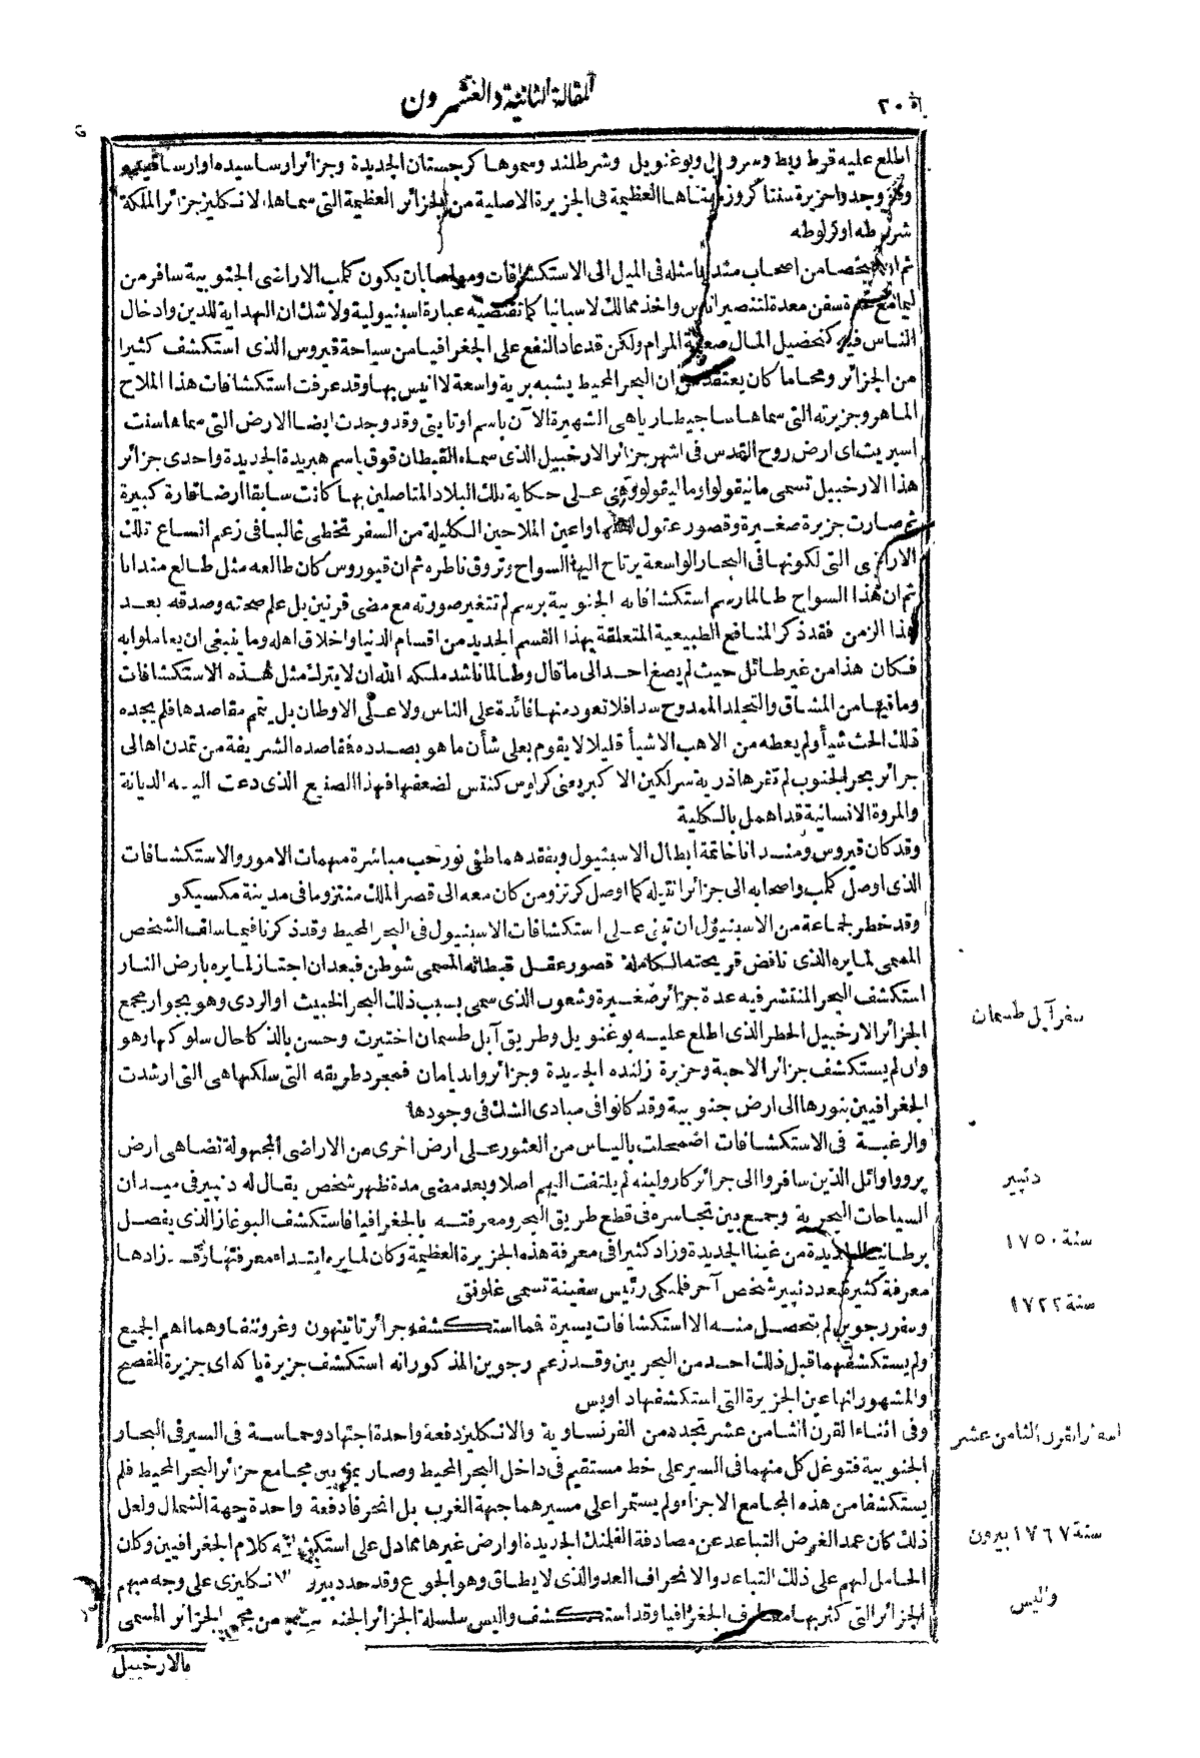 المقالة الثانية والعشرون
اطلع عليه قرطريط وسرويل وبوغنويل وشرطلند وسموها كرجستان الجديدة وجزائر ارساسيده اوارساقيديه
وجدوا جزيرة سنتاكروز العظيمة فى الجزيرة الاصلية من الجزائر العظيمة التى سماها الانكليز جزائر الملكة
شرلطه اوقرلوطه
من اصحاب مندانا مثله فى الميل الى الاستكشافات بان يكون كلب الاراضى الجنوبية سافر من
ليما مع سفن معدة لتنصير اناس واخذ ممالك لاسبانيا كما تقتضيه عبارة اسبنيولية ولا شك ان الهداية للدين وادخال
الناس فيه كتحصيل المال المرام ولكن قد عاد النفع على الجغرافيا من سياحة قيروس الذى استكشف كثيرا
من الجزائر ومحا ما كان يعتقد من ان البحر المحيط يشبه برية واسعة لا انيس بها وقد عرفت استكشافات هذا الملاح
الماهر وجزيرته التى سماها ساجيطاريا هى الشهيرة الآن باسم اوتايتى وقد وجدت ايضا الارض التى سماها سنت
اسبريت اى ارض روح القدس فى اشهر جزائر الارخبيل الذى سماه القبطان قوق باسم هبريدة الجديدة واحدى جزائر
هذا الارخبيل تسمى مانيقولو او ماليقولو وهى على حكاية تلك البلاد المتاصلين بها كانت سابقا ارضا قارة كبيرة
ثم صارت جزيرة صغيرة وقصور عقول واعين الملاحين الكليلة من السفر تخطى غالبا فى زعم اتساع تلك
الاراضى التى لكونها فى البحار الواسعة يرتاح اليها السواح وتروق ناظره ثم ان قيوروس كان طالعه مثل طالع مندانا
ثم ان هذا السواح طالما رسم استكشافاته الجنوبية برسم لم تتغير صورته مع مضى قرنين بل علم صحته وصدقه بعد
هذا الزمن فقد ذكر المنافع الطبيعية المتعلقة بهذا القسم الجديد من اقسام الدنيا واخلاق اهله وما ينبغى ان يعاملوا به
فكان هذا من غير طائل حيث لم يصغ احد الى ما قال وطالما ناشد ملكه الله ان لا يترك مثل هذه الاستكشافات
وما فيها من المشاق والتجلد الممدوح سدا فلا تعود منها فائدة على الناس ولا على الاوطان بل يتمم مقاصدها فلم يجده
ذلك الحث شيأ ولم يعطه من الاهب الا شيأ قليلا لا يقوم بعلى شأن ما هو بصدده فمقاصده الشريفة من تمدن اهالى
جزائر بحر الجنوب لم تثمرها ذرية سرلكين الاكبر يعنى كرلوس كنتس لضعفها فهذا الصنيع الذى دعت اليه الديانة
والمروة الانسانية قد اهمل بالكلية
وقد كان قيروس ومندانا خاتمة ابطال الاسبنيول وبفقدهما طفى نور حب مباشرة مهمات الامور والاستكشافات
الذى اوصل كلب واصحابه الى جزائر انتيله كما اوصل كرتزو من كان معه الى قصر الملك منتزوما فى مدينة مكسيكو
وقد خطر لجماعة من الاسبنيول ان تبنى على استكشافات الاسبنيول فى البحر المحيط وقد ذكرنا فيما سلف الشخص
المسمى لمايره الذى ناقض قريحته الكاملة قصور عقل قبطانه المسمى شوطن فبعد ان اجتاز لمايره بارض النار
استكشف البحر المنتشر فيه عدة جزائر صغيرة وشعوب الذى سمى بسبب ذلك البحر الخبيث او الردى وهو بجوار مجمع
الجزائر الارخبيل الخطر الذى اطلع عليه بوغنويل وطريق آبل طسمان اختيرت وحسن بالذكا حال سلوكها وهو
وان لم يستكشف جزائر الاحبة وجزيرة زلنده الجديدة وجزائر واندايمان فمجرد طريقه التى سلكها هى التى ارشدت
الجغرافيين بنورها الى ارض جنوبية وقد كانوا فى مبادى الشك فى وجودها
والرغبة فى الاستكشافات اضمحلت بالياس من العثور على ارض اخرى من الاراضى المجهولة تضاهى ارض
پروو اوائل الذين سافروا الى جزائر كارولينه لم يلتفت اليهم اصلا وبعد مضى مدة ظهر شخص يقال له دنپير فى ميدان
السياحات البحرية وجمع بين تجاسره فى قطع طريق البحر ومعرفته بالجغرافيا فاستكشف البوغاز الذى يفصل
برطانيا الجديدة من غينا الجديدة وزاد كثيرا فى معرفة هذه الجزيرة العظيمة وكان لمايره ابتداء معرفتها وقد زادها
معرفة كثيرة بعد دنپير شخص آخر فلمنكى رئيس سفينة تسمى غلوفتى
وسفر رجوين لم يتحصل منه الا استكشافات يسيرة فما استكشفه جزائر تاتينهون وغروننغا وهما اهم الجميع
ولم يستكشفهما قبل ذلك احد من البحريين وقد زعم رجوين المذكور انه استكشف جزيرة پاكه اى جزيرة الفصح
والمشهور انها عين الجزيرة التى استكشفها داويس
وفى اثناء القرن الثامن عشر تجدد من الفرنساوية والانكليز دفعة واحدة اجتهاد وحماسة فى السير فى البحار
الجنوبية فتوغل كل منهما فى السير على خط مستقيم فى داخل البحر المحيط وصار يمر بين مجامع جزائر البحر المحيط فلم
يستكشفا من هذه المجامع الا جزاء ولم يستمرا على مسيرهما جهة الغرب بل انحرفا دفعة واحدة جهة الشمال ولعل
ذلك كان عمد الغرض التباعد عن مصادفة الفلمنك الجديدة او ارض غيرها مما دل على استكشافه كلام الجغرافيين وكان
الحامل لهم على ذلك التباعد والانحراف العدو الذى لا يطاق وهو الجوع وقد حدد بيرون الانكليزى على وجه مبهم
الجزائر التى كثر بها معارف الجغرافيا وقد استكشف واليس سلسلة الجزائر من مجمع الجزائر المسمى
بالارخبيل
سفر آبل طسمان
دنپير
سنة ١٧٥٠
سنة ١٧٢٢
اسفار القرن الثامن عشر
سنة ١٧٦٧ بيرون
واليس